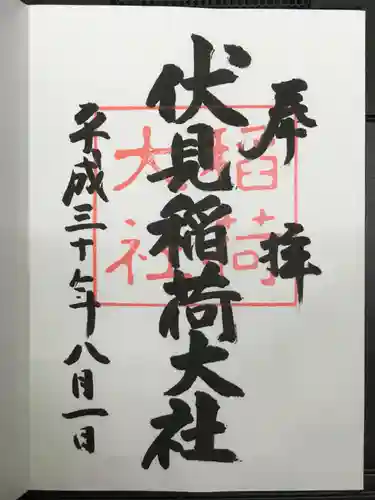 奉拝
伏見稲荷大社
平成三十年八月一日
稲荷
大社